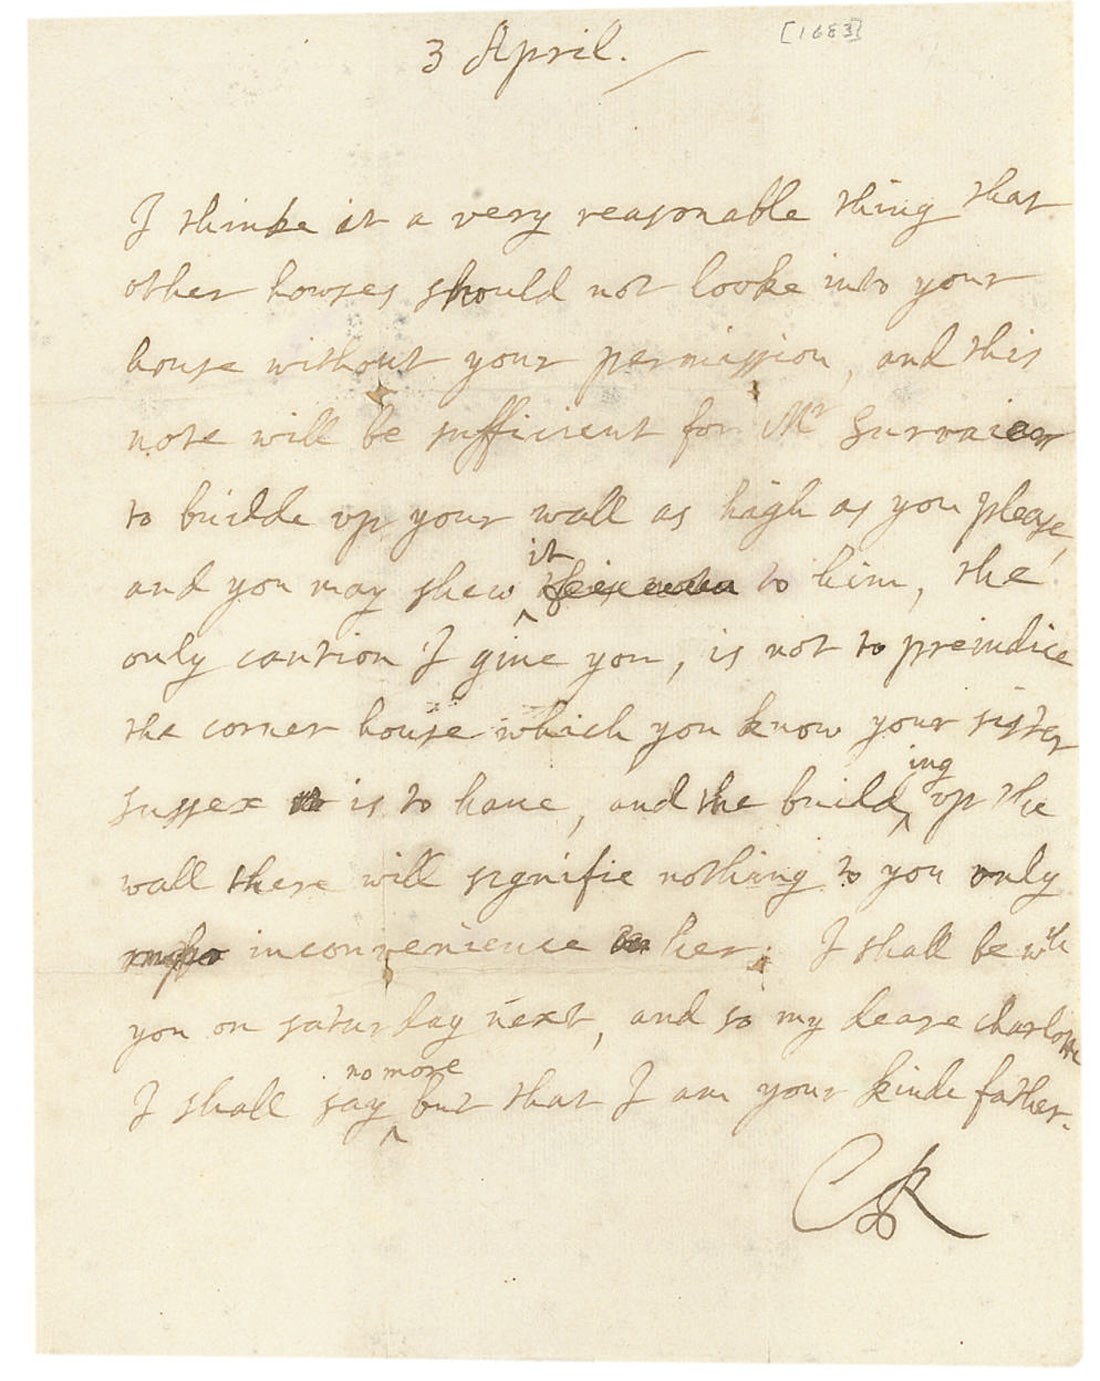 3 April.
[1683]
I thinke it a very reasonable thing that
other howses should not looke into your
house without your permission, and this
note will be sufficient for Mr Survaier
to builde up your wall as high as you please,
and you may shew it to him, the
only caution I giue you, is not to preiudice
the corner house which you know your sister
sussex is to haue, and the building up the
wall there will signifie nothing to you only
inconuenience her; I shall be wth
you on saturday next, and so my deare charlotte
I shall say no more but that I am your kinde father.
CR